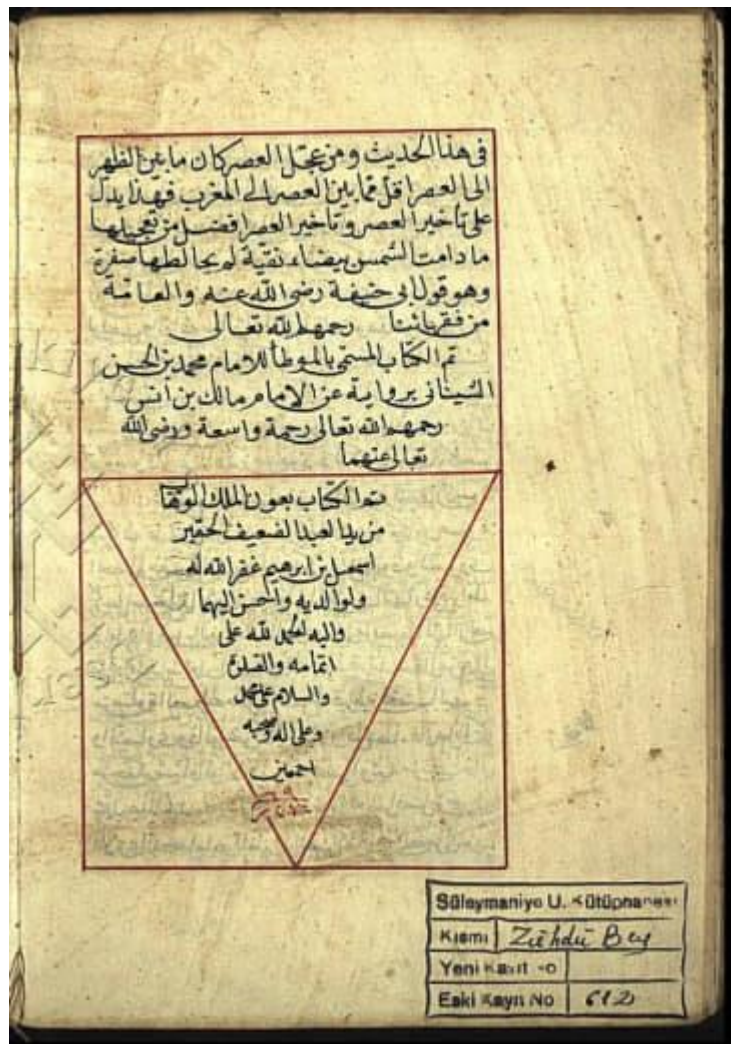 في هذا الحديث ومن عجل العصر كان ما بين الظهر
الى العصر اقل مما بين العصر الى المغرب فهذا يدل
على تاخير العصر وتاخير العصر افضل من تعجيلها
ما دامت الشمس بيضاء نقية لم يخالطها صفرة
وهو قول ابي حنيفة رضى الله عنه والعامة
من فقهائنا رحمهم الله تعالى
تم الكتاب المسمى بالموطأ للامام محمد بن الحسن
الشيباني برواية عن الامام مالك بن انس
رحمهم الله تعالى رحمة واسعة ورضى الله
تعالى عنهما
تم الكتاب بعون الملك الوهاب
من يد العبد الضعيف الحقير
اسمعيل بن ابرهيم غفر الله له
ولوالديه واحسن اليهما
واليه الحمد لله على
اتمامه والصلوة
والسلام على محمد
وعلى اله وصحبه
اجمعين
Süleymaniye U. Kütüphanesi
Kısmı Zühdü Bey
Yeni Kayıt No
Eski Kayıt No 612